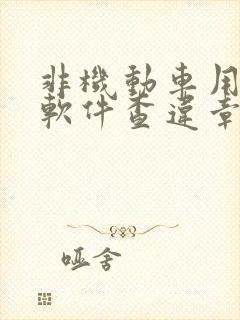 非機動車用
軟件查違章
哑舍